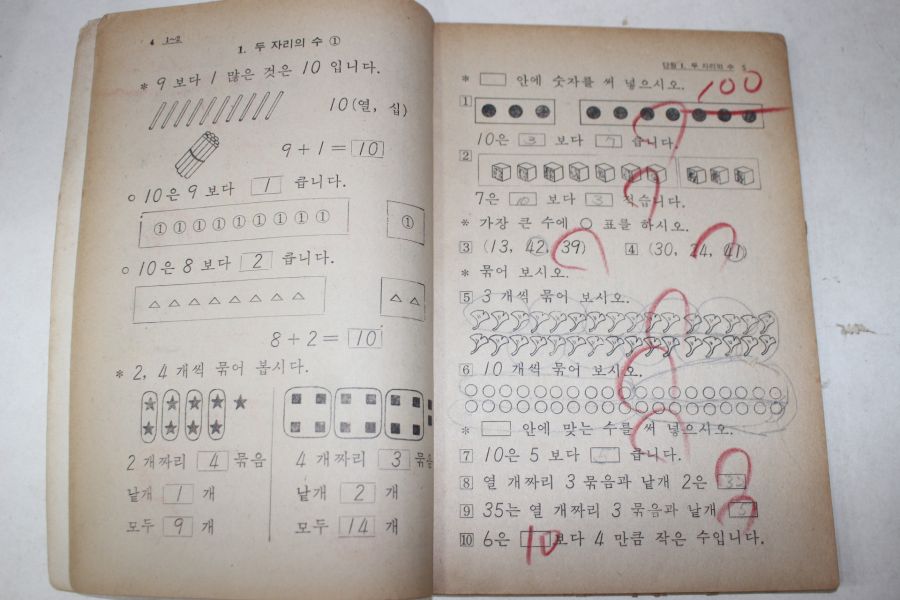 4 1~2
1. 두 자리의 수 ①
* 9 보다 1 많은 것은 10 입니다.
10(열, 십)
9 + 1 = 10
○ 10은 9 보다 1 큽니다.
① ① ① ① ① ① ① ① ① ①
○ 10은 8 보다 2 큽니다.
8 + 2 = 10
* 2, 4 개씩 묶어 봅시다.
2 개짜리 4 묶음
낱개 1 개
모두 9 개
4 개짜리 3 묶음
낱개 2 개
모두 14 개
단원 1. 두 자리의 수 5
* □ 안에 숫자를 써 넣으시오.
100
1
10은 3 보다 7 큽니다.
2
7은 10 보다 3 적습니다.
* 가장 큰 수에 ○ 표를 하시오.
3 (13, 42, 39) 4 (30, 24, 41)
* 묶어 보시오.
5 3 개씩 묶어 보시오.
6 10 개씩 묶어 보시오.
* □ 안에 맞는 수를 써 넣으시오.
7 10은 5 보다 5 큽니다.
8 열 개짜리 3 묶음과 낱개 2은 32
9 35는 열 개짜리 3 묶음과 낱개 5
10 6은 10 보다 4 만큼 작은 수입니다.